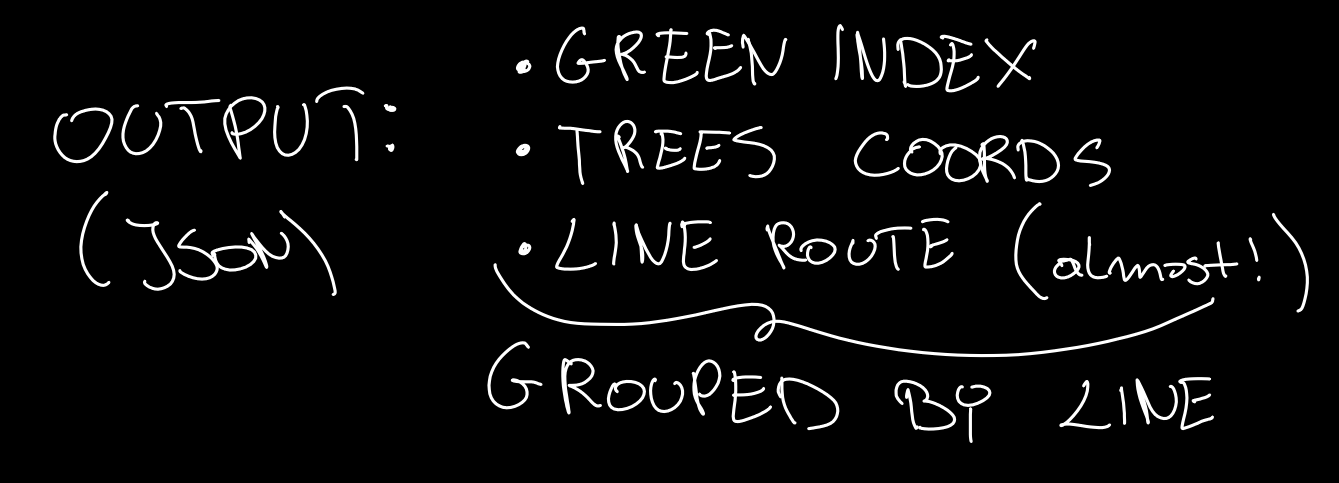 OUTPUT:
(JSON)
• GREEN INDEX
• TREES COORDS
• LINE ROUTE (almost!)
GROUPED BY LINE